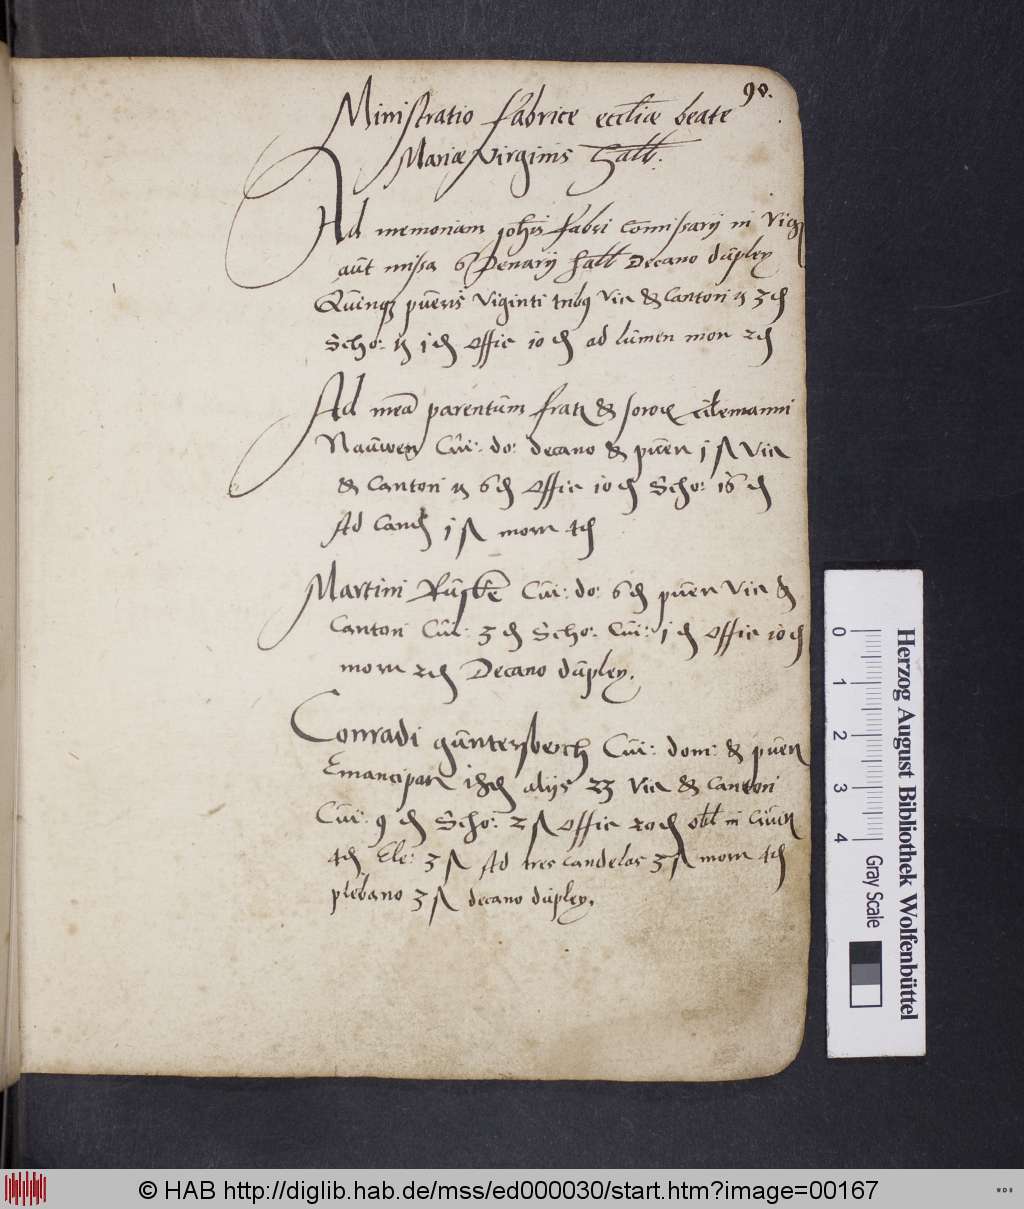 90.
Ministratio fabrice eccliæ beate
Mariæ Virginis Halb.
Ad memoriam Johis fabri Comissarij in Vig
aut missa 6 Denarij halb Decano dupley
Quinq pueris Viginti tribq Vic & Cantori 3 ₰
Scho: 1 ₰ offic 10 ₰ ad lumen mon 2 ₰
Ad meā parentum fratr & soror Tilemanni
Nauwen Cui: do: decano & puer 1 ß Vic
& Cantori 6 ₰ offic 10 ₰ Scho: 18 ₰
Ad Cand 1 ß morn 4 ₰
Martini Rusken Cui: do: 6 ₰ puer Vic &
Cantori Cui: 3 ₰ Scho: Cui: 1 ₰ offic 10 ₰
morn 2 ₰ Decano dupley.
Conradi guntersberch Cui: dom: & puer
Emancipatr 18 ₰ alijs 23 Vic & Cantori
Cui: 9 ₰ Scho: 2 ß offic 20 ₰ obl in
4 ₰ Ele: 3 ß Ad tres candelas 3 ß morn 4 ₰
plebano 3 ß decano dupley.
Herzog August Bibliothek Wolfenbüttel
0 1 2 3 4 Gray Scale
© HAB http://diglib.hab.de/mss/ed000030/start.htm?image=00167